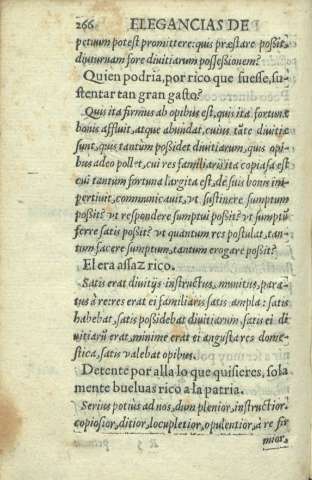 266 ELEGANCIAS DE
petuum potest promittere: quis præstare possit,
diuturnam fore diuitiarum possessionem?
Quien podria, por rico que fuesse, su-
stentar tan gran gasto?
Quis ita firmus ab opibus est, quis ita fortunæ
bonis affluit, atque abundat, cuius tātæ diuitiæ
sunt, quis tantùm possidet diuitiarum, quis opi-
bus adeo pollet, cui res familiaris ita copiasa est
cui tantùm fortuna largita est, de suis bonis im-
pertiuit, communicauit, vt sustinere sumptum
possit? vt respondere sumptui possit? vt sumptū
ferre satis possit? vt quantum res postulat, tan-
tum facere sumptum, tantum erogare possit?
El era assaz rico.
Satis erat diuitijs instructus, munitus, para-
tus à re: res erat ei familiaris satis ampla: satis
habebat, satis possidebat diuitiarum, satis ei di
uitiarū erat, minime erat ei angusta res dome-
stica, satis valebat opibus.
Detente por alla lo que quisieres, sola
mente bueluas rico a la patria.
Serius potiùs ad nos, dum plenior, instructior,
copiosior, ditior, locupletior, opulentior, à re fir
mior,